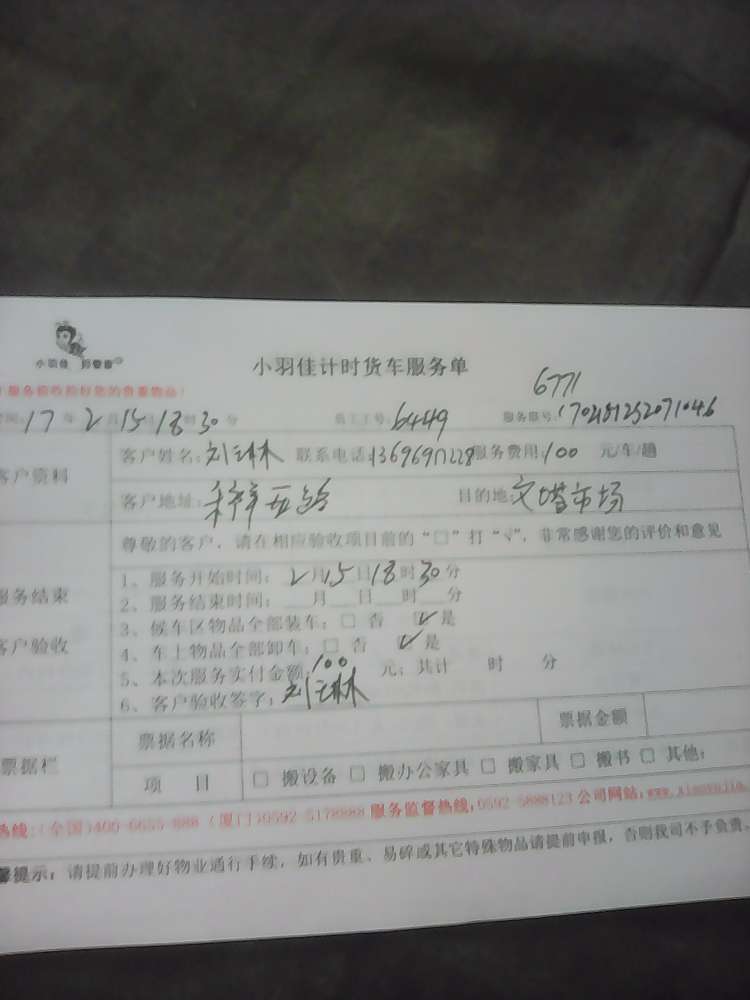 小羽佳
小羽佳计时货车服务单
服务验收前好您的贵重物品!
6771
17年2月15日18时30分 员工工号:6449 服务单号:
客户资料 客户姓名: 联系电话: 服务费用:100 元/车/趟
客户地址: 目的地:文塔市场
尊敬的客户,请在相应验收项目前的“□”打“√”,非常感谢您的评价和意见
服务结束
客户验收
1、服务开始时间:2月15日18时30分
2、服务结束时间:__月__日__时__分
3、候车区物品全部装车:□ 否 ☑ 是
4、车上物品全部卸车:□ 否 ☑ 是
5、本次服务实付金额:100 元;共计 时 分
6、客户验收签字:
票据栏 票据名称 票据金额
项 目 □ 搬设备 □ 搬办公家具 □ 搬家具 □ 搬书 □ 其他:
热线:(全国)400-6655-888 (厦门)0592-5178888 服务监督热线:0592-5888123 公司网站:
馨提示:请提前办理好物业通行手续,如有贵重、易碎或其它特殊物品请提前申报,否则我司不予负责。